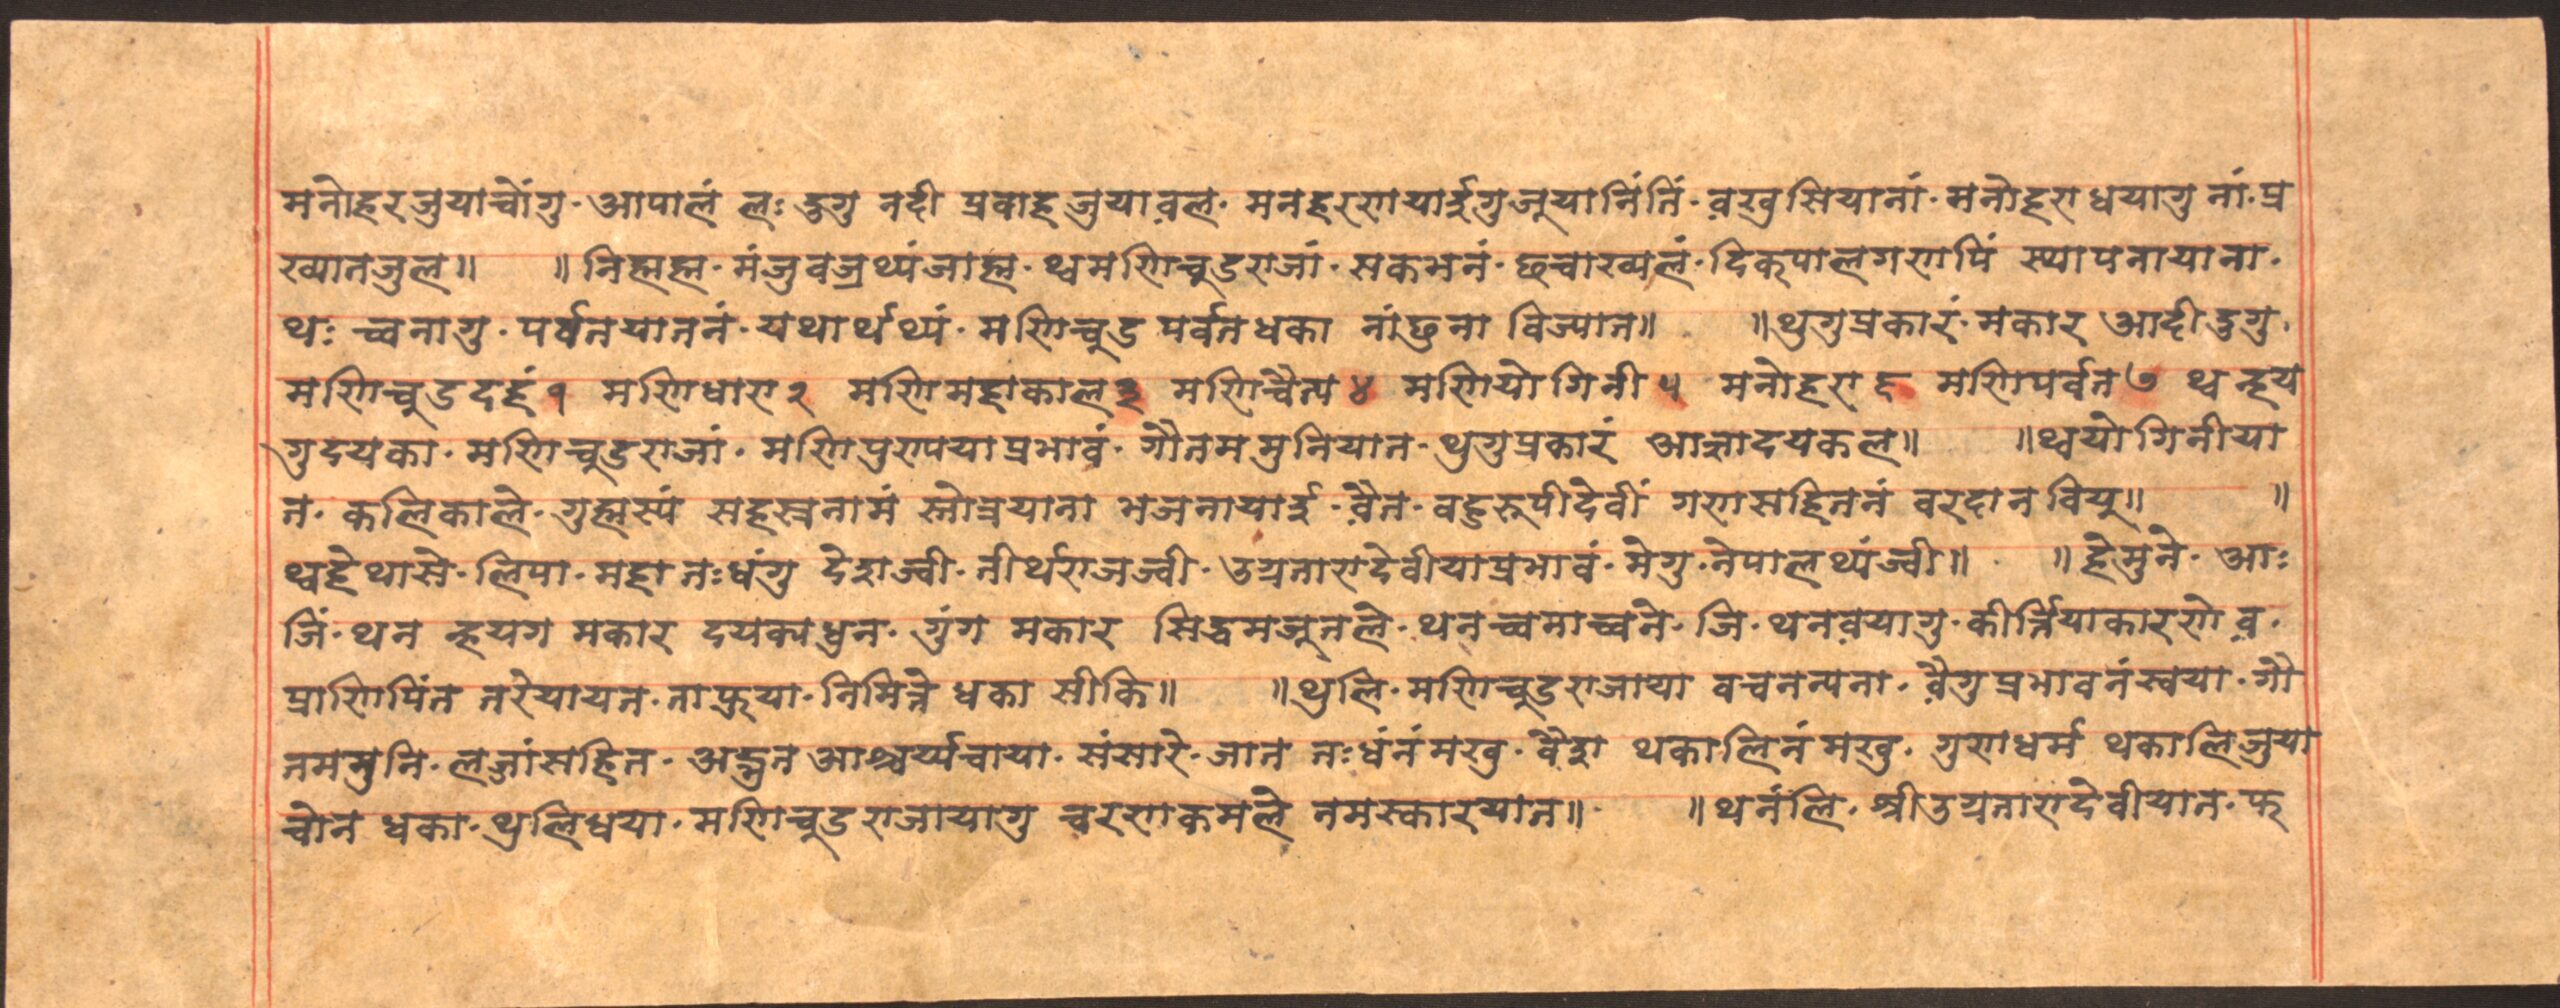 मनोहरजुयाचोंगु· आपालं लः दुगु नदी प्रवाह जुयावल· मनहरणयाईगुजूयानिंतिं· वखुसियानां· मनोहरा धयागु नां· प्र
ख्यातजुल॥ ॥ निह्मह्म· मंजुवज्रथ्यंजाह्म· थ्वमणिचुडराजां· सकभनं· छचाख्यलं· दिक्पालगणपिं स्थापनायाना·
थः च्वनागु· पर्वतयातनं· यथार्थथ्यं· मणिचुड पर्वतधका नांछुना विज्यात॥ ॥थुगुप्रकारं· मकार आदी दुगु·
मणिचुडदहं १ मणिधारा २ मणिमहाकाल ३ मणिचैत्य ४ मणियोगिनी ५ मनोहरा ६ मणिपर्वत ७ थ्व न्हय
गुदयका· मणिचुडराजां· मणिपुरुपयाप्रभावं· गौतममुनियात· थुगुप्रकारं आज्ञादयकल॥ ॥थ्वयोगिनीया
त· कलिकाले· गुह्मस्यं सहस्त्रनामं स्तोत्रयाना भजनायाई· वैत· वहुरूपीदेवीं गणसहितनं वरदान वियू॥ ॥
थ्वहेथासे· लिपा· महा तःधंगु देशज्वी· तीर्थराजज्वी· उग्रतारादेवीयाप्रभावं· मेगु· नेपालथ्यंज्वी॥ ॥हेमुने· आः
जिं· थन न्हयग मकार दयक्यधुन· गुंग मकार सिद्धमजूतले· थनच्वमाच्वने· जि· थनवयागु· कीर्त्तियाकारणे व·
प्राणिपिंत तरेयायत· ताफुया· निमित्ते धका सीकि॥ ॥थुलि· मणिचूडराजाया वचनन्यना· वैगु प्रभावनंस्वया· गौ
तममुनि· लजांसहित· अद्भुत आश्चर्य्यचाया· संसारे· जात तःधंनंमखु· वैश थकालिनंमखु· गुणधर्म थकालिजुया
चोन धका· थुलिधया· मणिचूडराजायागु चरणकमले नमस्कारयात॥ ॥थनंलि· श्रीउग्रतारादेवीयात· फ